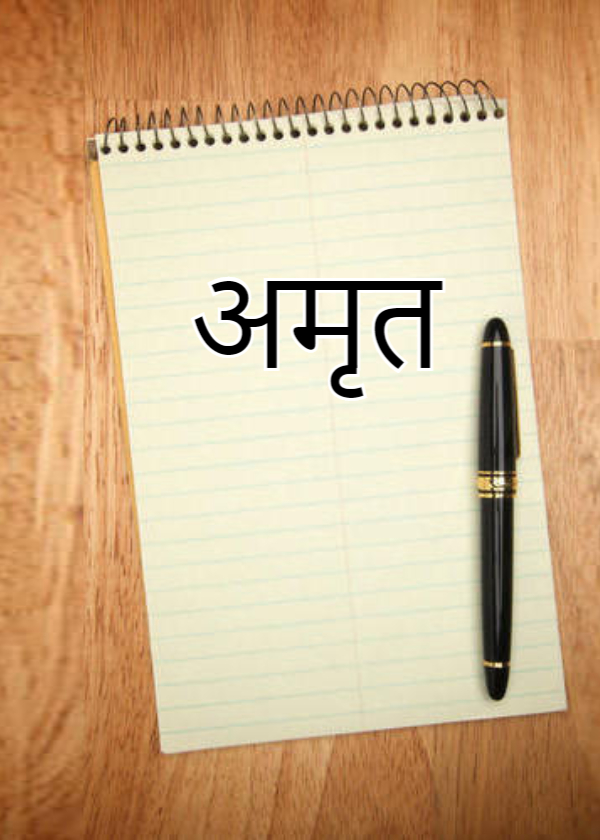 अमृत